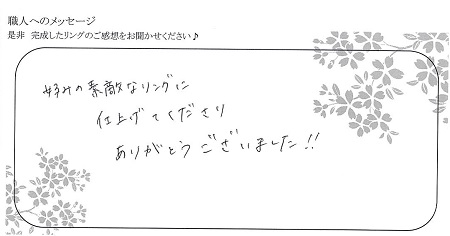 職人へのメッセージ
是非 完成したリングのご感想をお聞かせください♪
好みの素敵なリングに
仕上げてくださり
ありがとうございました!!